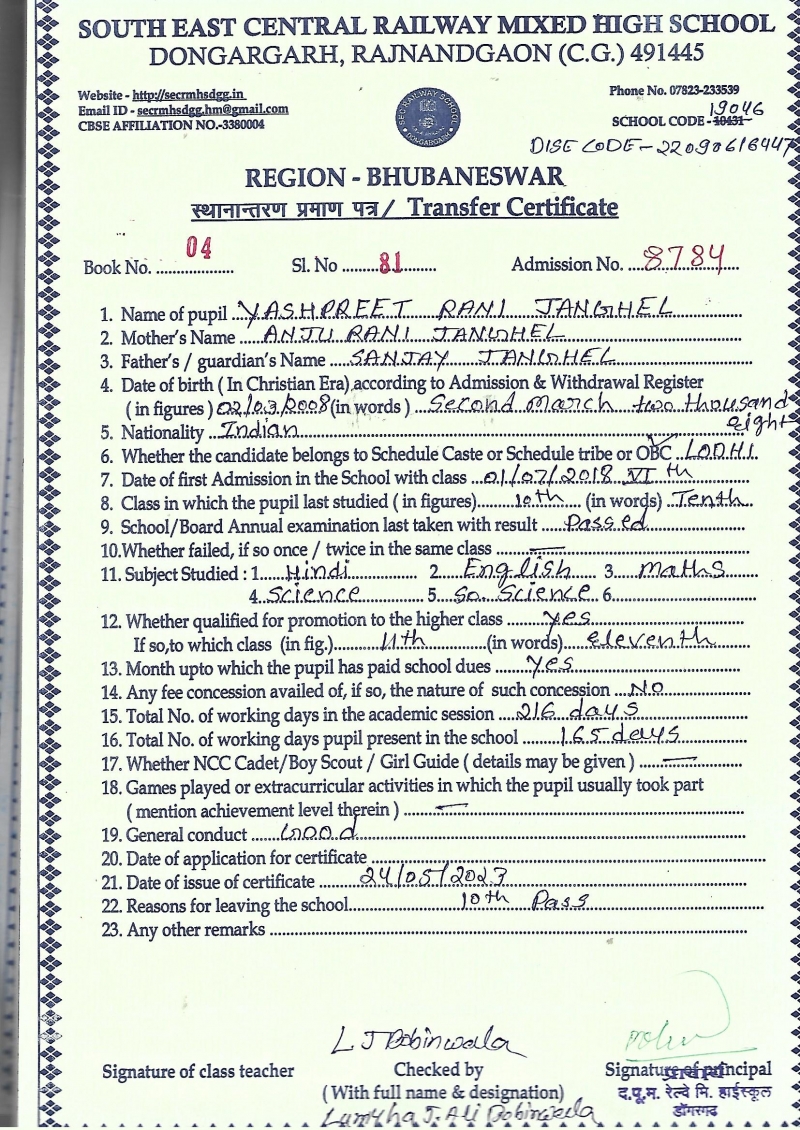 SOUTH EAST CENTRAL RAILWAY MIXED HIGH SCHOOL
DONGARGARH, RAJNANDGAON (C.G.) 491445
Website - http://secrmhsdgg.in
Phone No. 07823-233539
Email ID - secrmhsdgg.hm@gmail.com
19046
SCHOOL CODE - 10431
CBSE AFFILIATION NO.-3380004
DISE CODE - 22090616447
SEC RAILWAY SCHOOL
DONGARGARH
REGION - BHUBANESWAR
स्थानान्तरण प्रमाण पत्र / Transfer Certificate
Book No. 04 Sl. No 81 Admission No. 8784
1. Name of pupil YASHPREET RANI JANGHEL
2. Mother's Name ANJU RANI JANGHEL
3. Father's / guardian's Name SANJAY JANGHEL
4. Date of birth ( In Christian Era) according to Admission & Withdrawal Register
( in figures ) 02/03/2008 (in words ) Second March two thousand
eight
5. Nationality Indian
6. Whether the candidate belongs to Schedule Caste or Schedule tribe or OBC LODHI
7. Date of first Admission in the School with class 01/07/2018 VI th
8. Class in which the pupil last studied ( in figures) 10th (in words) Tenth
9. School/Board Annual examination last taken with result Passed
10.Whether failed, if so once / twice in the same class —
11. Subject Studied : 1. Hindi 2. English 3. maths
4. Science 5. So. Science 6.
12. Whether qualified for promotion to the higher class yes
If so,to which class (in fig.) 11th (in words) eleventh
13. Month upto which the pupil has paid school dues yes
14. Any fee concession availed of, if so, the nature of such concession NO
15. Total No. of working days in the academic session 216 days
16. Total No. of working days pupil present in the school 165 days
17. Whether NCC Cadet/Boy Scout / Girl Guide ( details may be given ) —
18. Games played or extracurricular activities in which the pupil usually took part
( mention achievement level therein ) —
19. General conduct Good
20. Date of application for certificate
21. Date of issue of certificate 24/05/2023
22. Reasons for leaving the school 10th Pass
23. Any other remarks
L J Dobinwala
Signature of class teacher Checked by Signature of principal
(With full name & designation)
द.पू.म. रेल्वे मि. हाईस्कूल
J. Ali Dobinwala
डोंगरगढ़